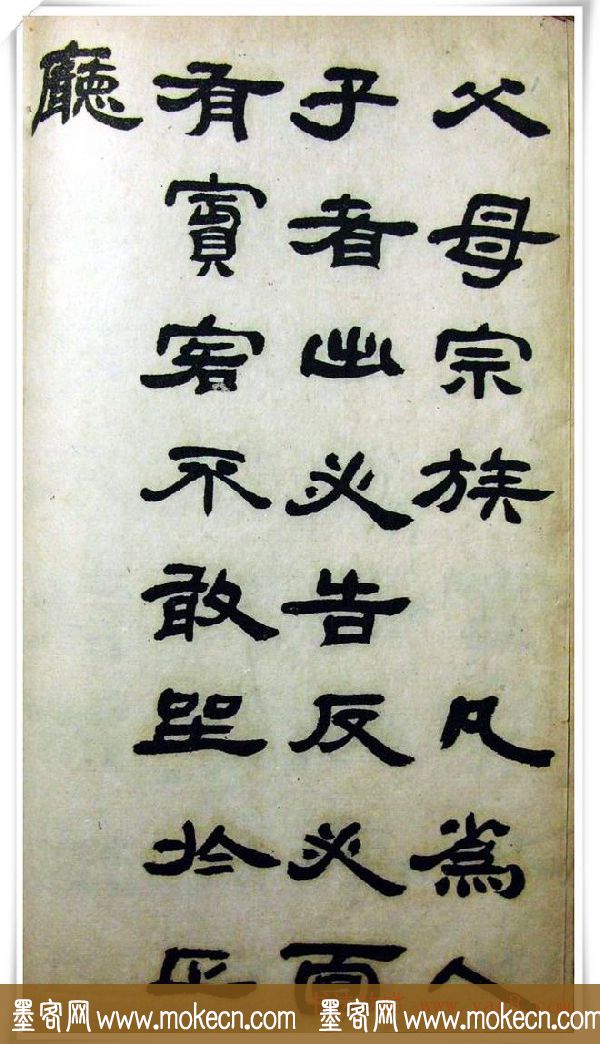 父母宗族 凡爲人
子者出必告反必面
有賓客不敢坐於正
廳
墨客网 www.mokecn.com 墨客网 www.mokecn.com